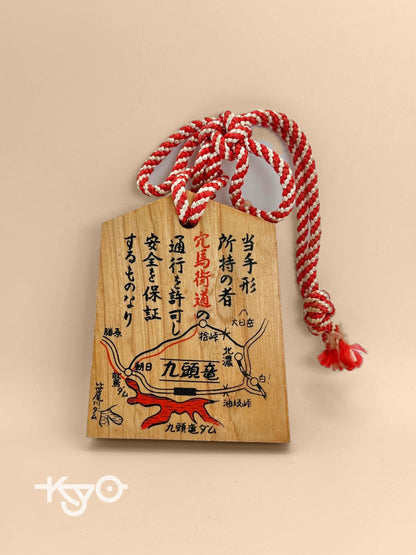 当手形
所持の者
穴馬街道の
通行を許可し
安全を保証
するものなり
大日岳
桧峠
北濃
勝原
朝日
九頭竜
鷲ダム
白鳥
油坂峠
笹生川ダム
九頭竜ダム
KYO